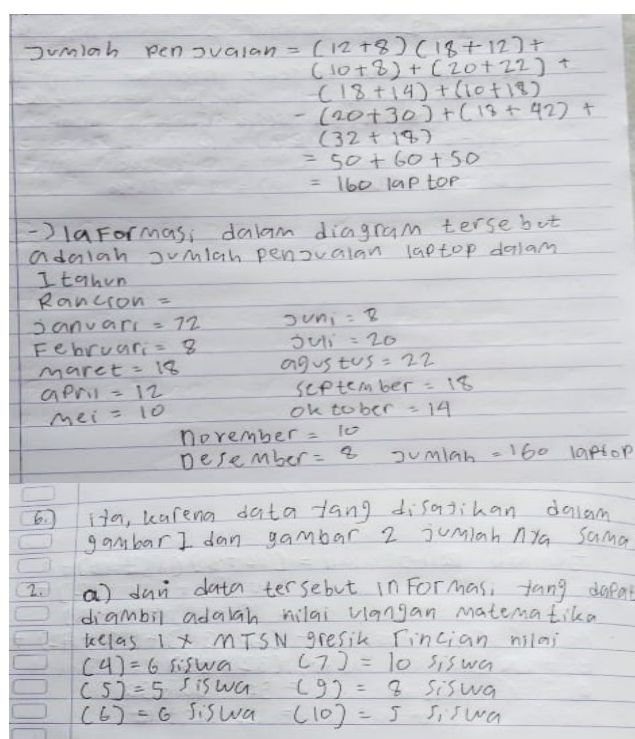 Jumlah penjualan = (12+8) (18+12) +
(10+8) + (20+22) +
(18+14) + (10+18)
- (20+30) + (18+42) +
(32+18)
= 50 + 60 + 50
= 160 laptop
-) Informasi dalam diagram tersebut
adalah jumlah penjualan laptop dalam
I tahun
Rancion =
Januari = 12 Juni = 8
Februari = 8 Juli = 20
maret = 18 agustus = 22
april = 12 september = 18
mei = 10 oktober = 14
november = 10
Desember = 8 Jumlah = 160 laptop
6.) iya, karena data yang disajikan dalam
gambar I dan gambar 2 jumlah nya sama
2. a) dari data tersebut informasi yang dapat
diambil adalah nilai ulangan matematika
kelas IX MTSN gresik rincian nilai
(4) = 6 siswa (7) = 10 siswa
(5) = 5 siswa (9) = 8 siswa
(6) = 6 siswa (10) = 5 siswa